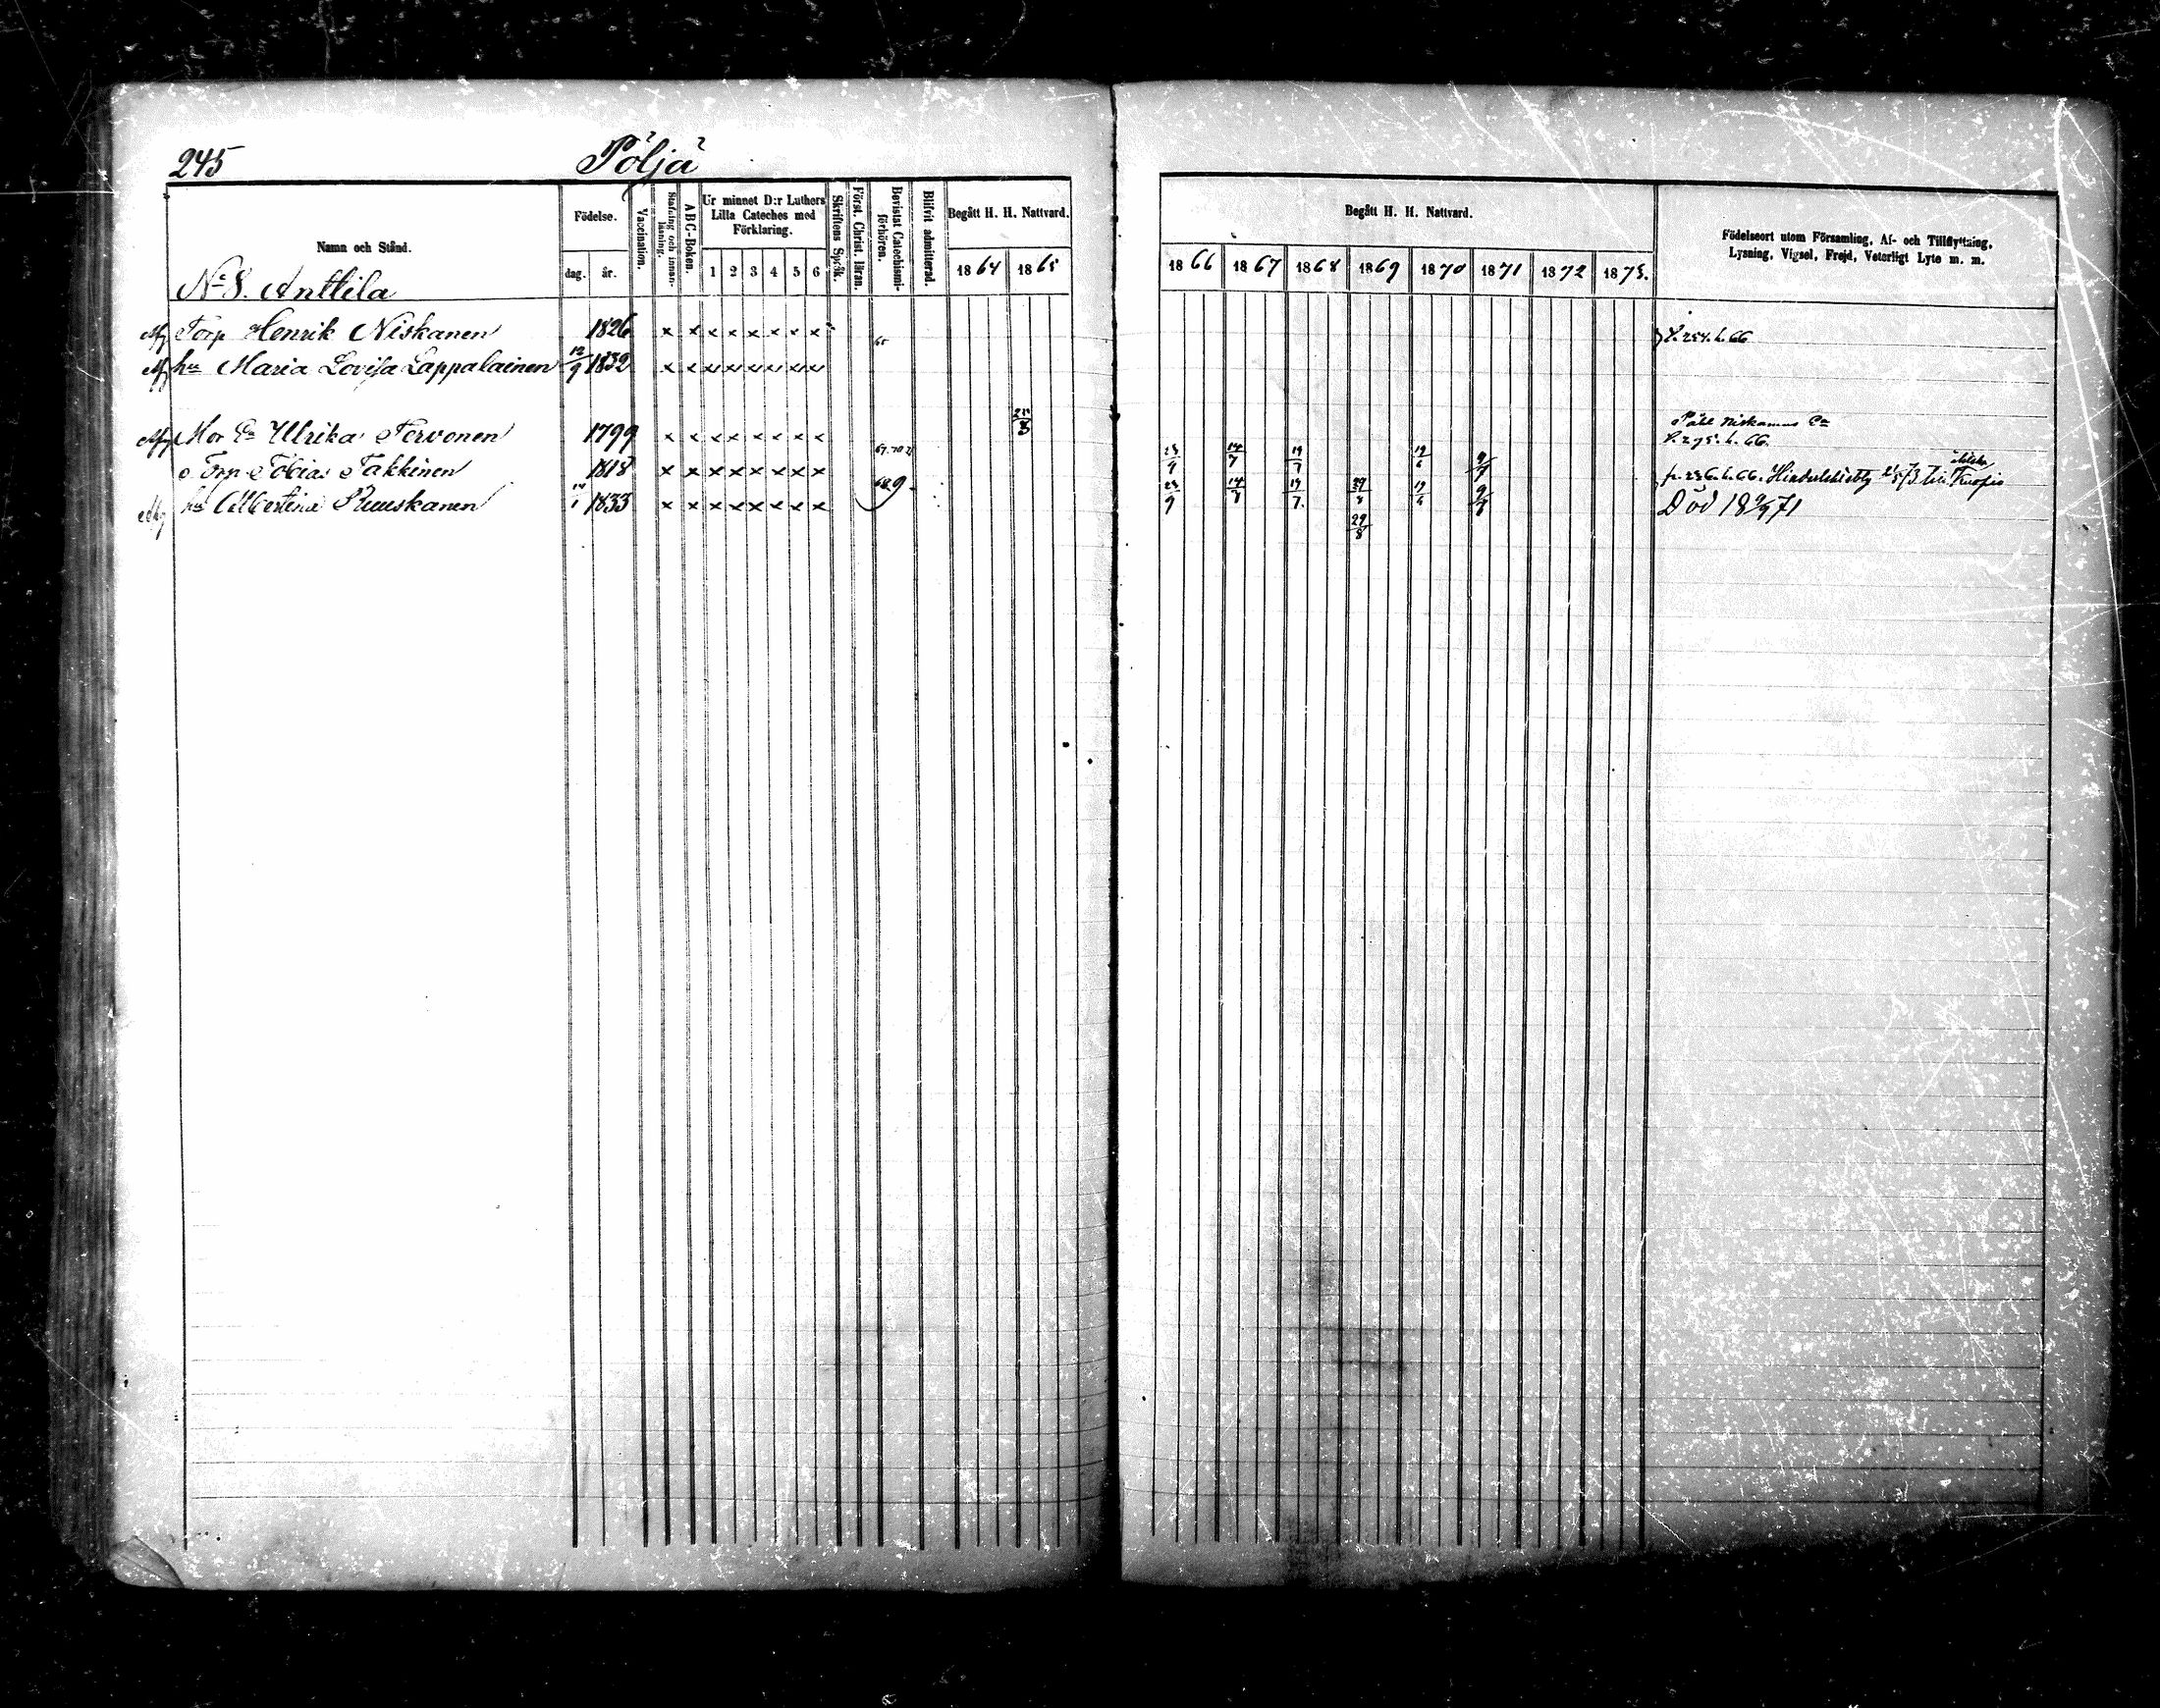 245 Pöljä
Namn och Stånd. Födelse. dag. år. Vaccination. Stafning och innanläsning. A B C-Boken. Ur minnet D:r Luthers Lilla Cateches med Förklaring. 1 2 3 4 5 6 Skriftens Språk. Först. Christ. läran. Bevistat Catechismiförhören. Blifvit admitterad. Begått H. H. Nattvard. 1864 1865
Begått H. H. Nattvard. 1866 1867 1868 1869 1870 1871 1872 1873. Födelseort utom Församling, Af- och Tillflyttning, Lysning, Vigsel, Frejd, Veterligt Lyte m. m.
N:o 8. Anttila
Afg Torp Henrik Niskanen 1826 x x x x x x x x 65 P. 254. h. 66
Afg hu Maria Lovisa Lappalainen 12/9 1832 x x x x x x x x
25/3 Påhl Niskanens
Afg Mor Ea Ulrika Tervonen 1799 x x x x x x x x P. 275. h. 66.
Torp Tobias Takkinen 1818 x x x x x x x x 67. 70 71 23/9 14/7 19/7 19/6 9/7 p. 236. h. 66. Kuopio
Afg hu Albertina Ruuskanen 14/1 1833 x x x x x x x x 68.9. 23/9 14/7 19/7. 29/8 19/6 9/7 Död 18 9/9 71
29/8